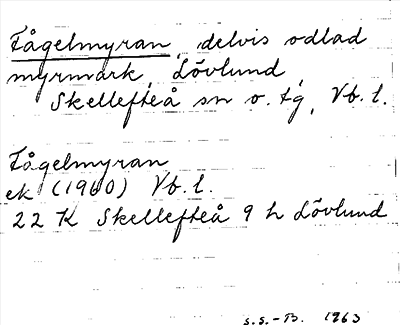 Fågelmyran, delvis odlad
myrmark, Lövlund,
Skellefteå sn o. tg, Vb. l.
Fågelmyran
ek (1960) Vb. l.
22 K Skellefteå 9 h Lövlund
S.S.-B. 1963